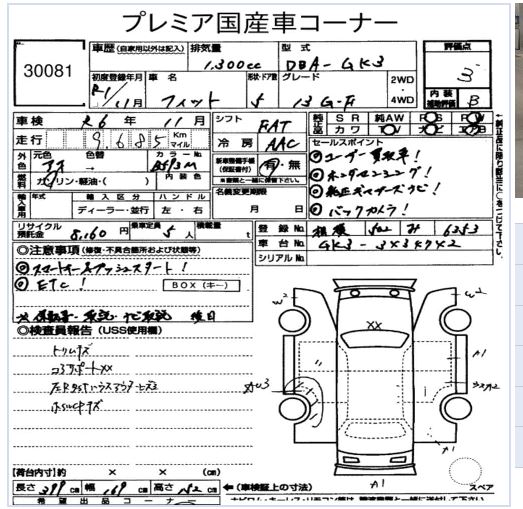 プレミア国産車コーナー
30081
車歴(自家用以外は記入) 排気量 型式
1,300cc DBA-GK3
評価点
3
初度登録年月 車名 形状・ドア数 グレード 2WD 4WD
R1/11月 フィット 5 13G・F
内装
補助評価 B
車検 R6年 11月
シフト FAT
純正品 SR 純AW PS PW
カワ TV ナビ エアB
走行 9,685 Km マイル
冷房 AAC
セールスポイント
◎ユーザー買取車!
◎ホンダセンシング!
◎純正ギャザーズナビ!
◎バックカメラ!
外色 元色 色替 カラーNo.
B593M
新車整備手帳(保証書付) 有・無
燃料 ガソリン・軽油・( ) 内装色
名義変更期限
月 日
輸入車 年式 輸入区分 ハンドル
ディーラー・並行 左・右
リサイクル預託金 8,160円 乗車定員 5人 積載量 t
登録No. 相模 502 み 6353
車台No. GK3-3×3497×2
シリアルNo.
◎注意事項(修復・不具合箇所および状態等)
◎スマートキー&プッシュスタート!
◎ETC! BOX(キー)
保証書・取説・ナビ取説 後日
◎検査員報告(USS使用欄)
トリムキズ
コアサポートXX
W2
W2
XX
A1
カW3
A1
【荷台内寸】約 × × (cm)
長さ 399cm 幅 169cm 高さ 152cm ←(車検証上の寸法)
スペア
希望出品コーナー
ナビロム・キーレス・リモコン等は、譲渡書類と一緒に送付して下さい